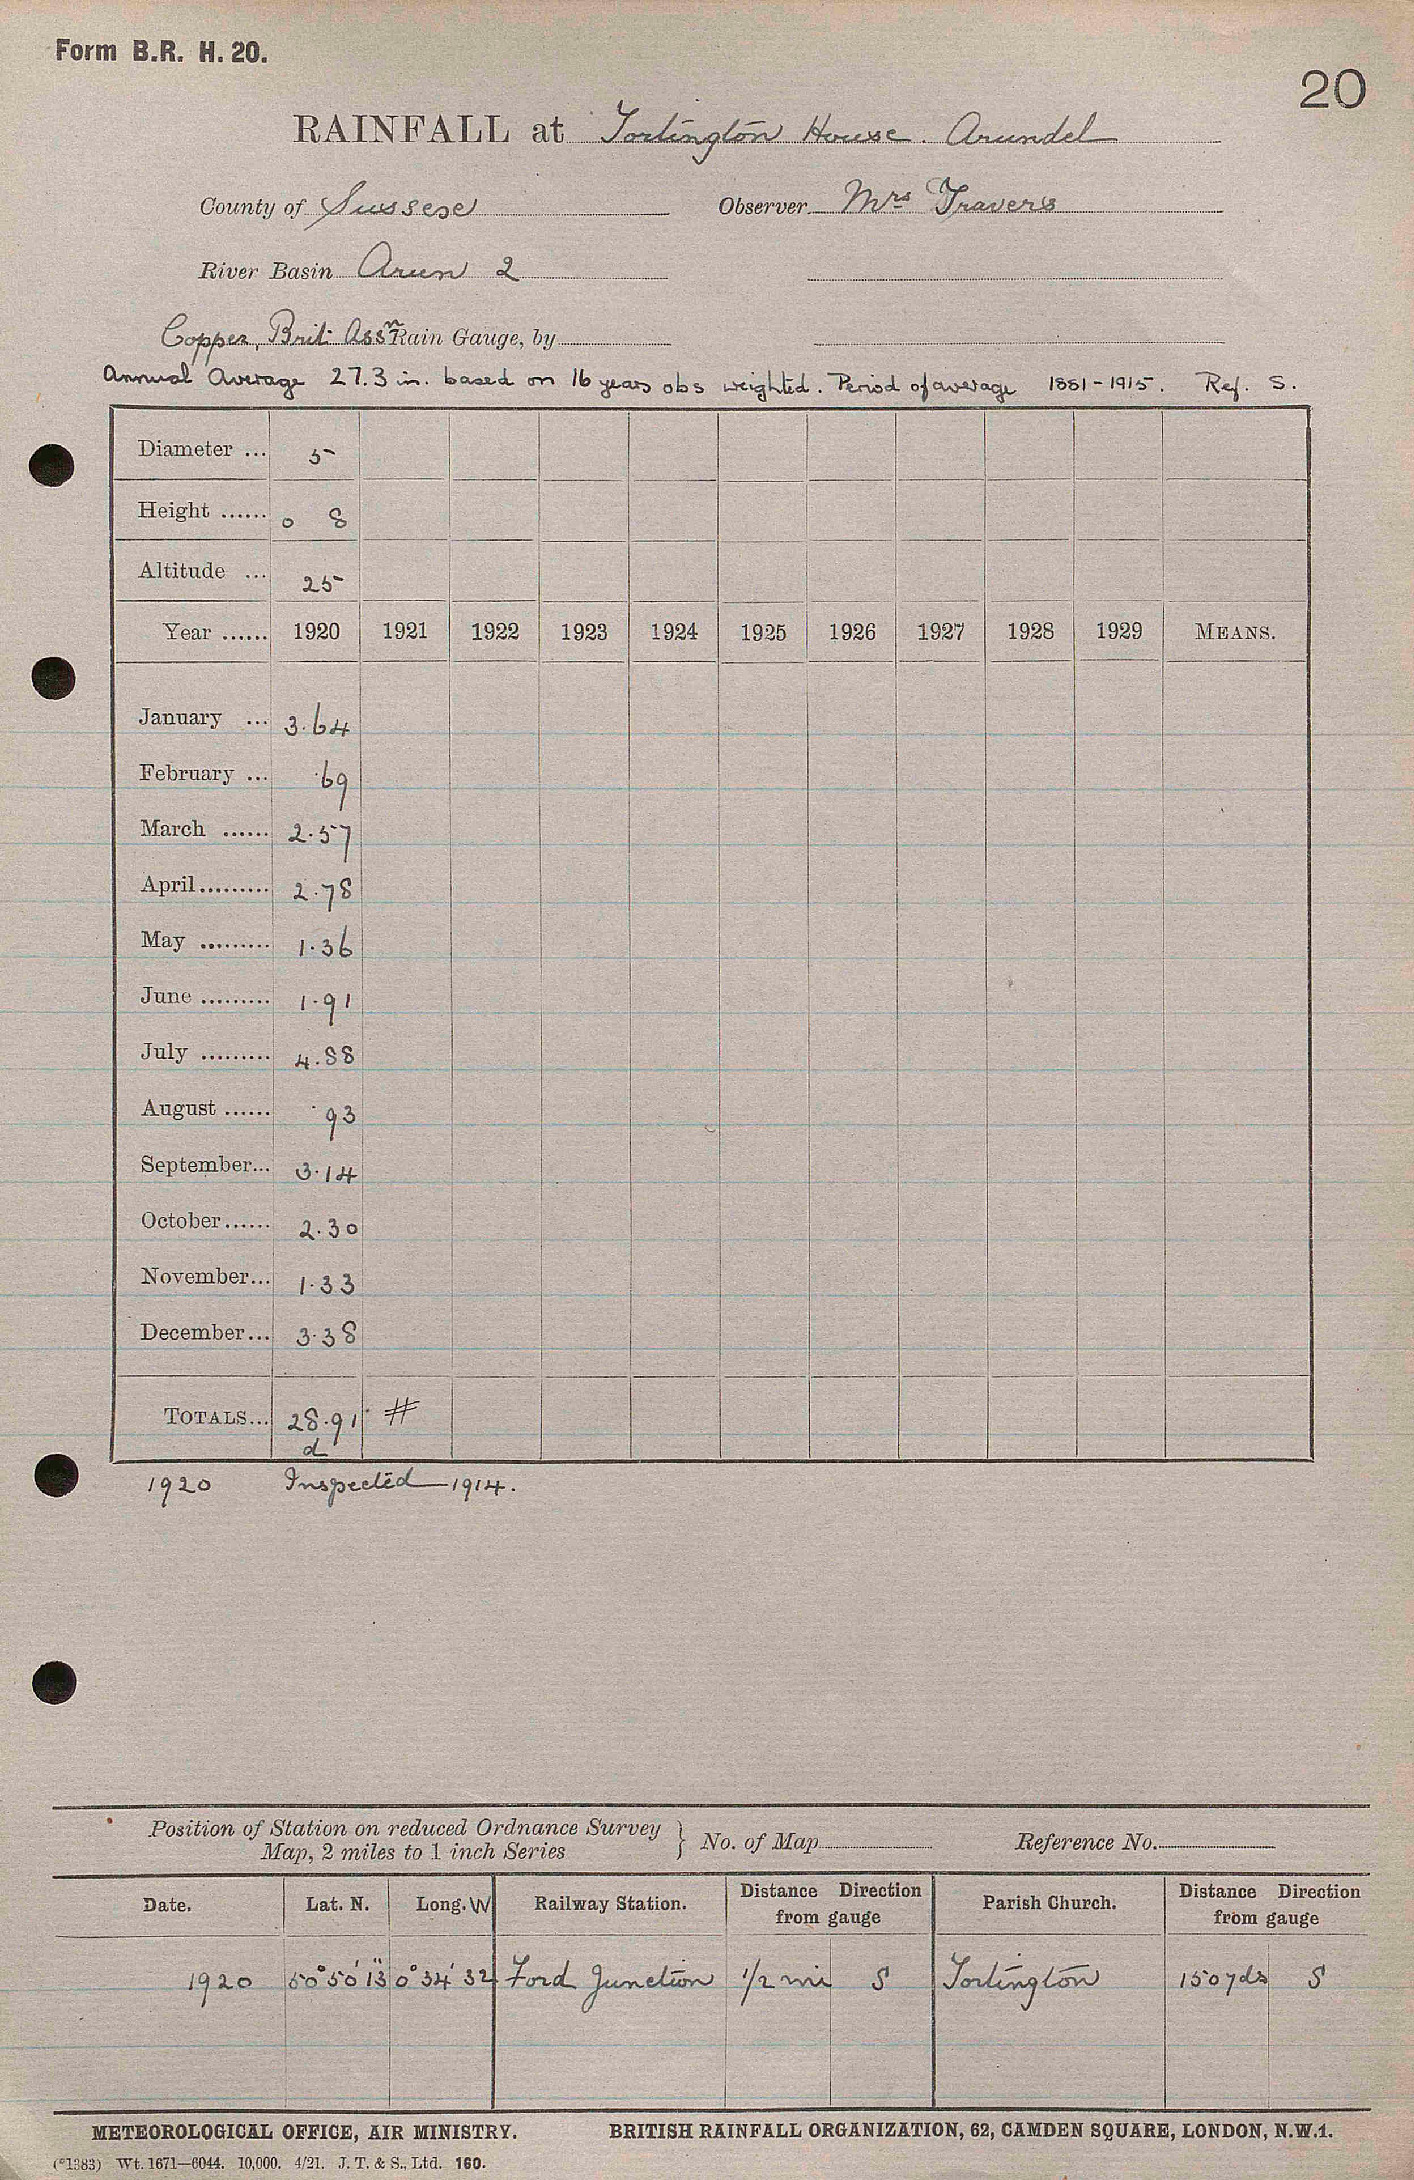 Form B.R. H. 20.
20
RAINFALL at Tortington House. Arundel
County of Sussex Observer Mrs Travers
River Basin Arun 2
Copper, Brit. Assn Rain Gauge, by
Annual Average 27.3 in. based on 16 years obs weighted. Period of average 1881-1915. Ref. S.
Diameter ... 5
Height ...... 0 8
Altitude ... 25
Year ...... 1920 1921 1922 1923 1924 1925 1926 1927 1928 1929 MEANS.
January ... 3.64
February ... .69
March ...... 2.57
April ......... 2.78
May ......... 1.36
June ......... 1.91
July ......... 4.88
August ...... .93
September... 3.14
October ...... 2.30
November... 1.33
December... 3.38
TOTALS... 28.91 #
d
1920 Inspected 1914.
Position of Station on reduced Ordnance Survey
Map, 2 miles to 1 inch Series } No. of Map Reference No.
Date. Lat. N. Long. W Railway Station. Distance Direction from gauge Parish Church. Distance Direction from gauge
1920 50° 50' 13" 0° 34' 32 Ford Junction 1/2 mi S Tortington 150 yds S
METEOROLOGICAL OFFICE, AIR MINISTRY. BRITISH RAINFALL ORGANIZATION, 62, CAMDEN SQUARE, LONDON, N.W.1.
(*1383) Wt. 1671—6044. 10,000. 4/21. J. T. & S., Ltd. 160.